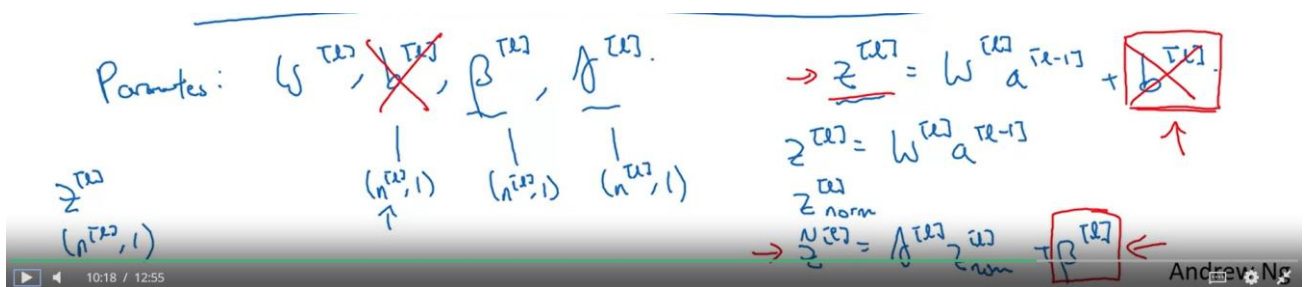 Parameters: W^[l], b^[l], β^[l], γ^[l].
(n^[l], 1) (n^[l], 1) (n^[l], 1)
z^[l]
(n^[l], 1)
→ z^[l] = W^[l] a^[l-1] + b^[l].
z^[l] = W^[l] a^[l-1]
z^[l] norm
→ z̃^[l] = γ^[l] z^[l] norm + β^[l] ←
10:18 / 12:55
Andrew Ng